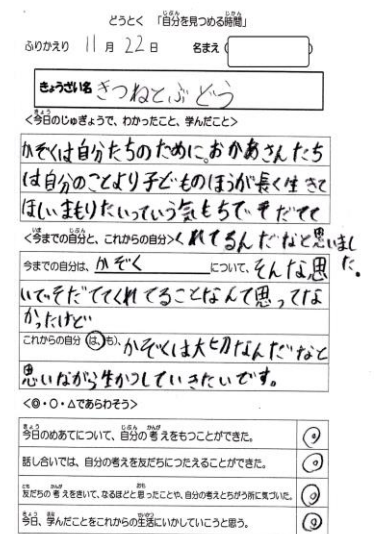 どうとく 「自分を見つめる時間」
ふりかえり 11月22日 名まえ
きょうざい名 きつねとぶどう
<今日のじゅぎょうで、わかったこと、学んだこと>
かぞくは自分たちのために。おかあさんたち
は自分のことより子どものほうが長く生きて
ほしいまもりたいっていう気もちでそだてて
<今までの自分と、これからの自分>くれてるんだなと思いまし
今までの自分は、かぞくについて、そんな思た。
いでそだててくれてることなんて思ってな
かったけど
これからの自分(は、も)、かぞくは大切なんだなと
思いながら生かつしていきたいです。
<◎・○・△であらわそう>
今日のめあてについて、自分の考えをもつことができた。 ◎
話し合いでは、自分の考えを友だちにつたえることができた。 ◎
友だちの考えをきいて、なるほどと思ったことや、自分の考えとちがう所に気づいた。 ◎
今日、学んだことをこれからの生活にいかしていこうと思う。 ◎